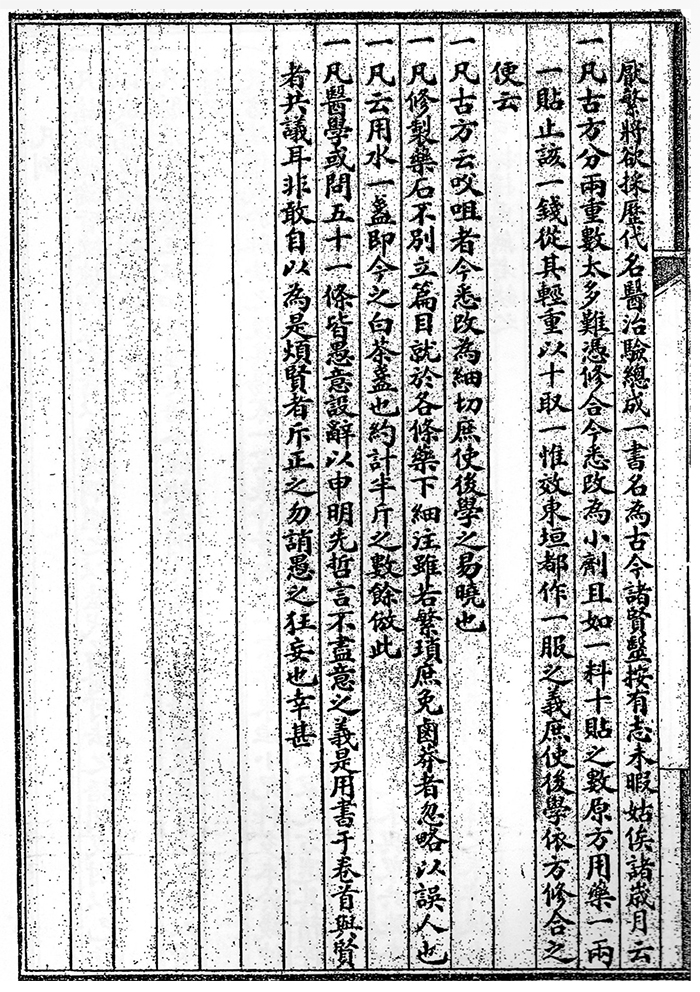 厭繁將欲採歷代名醫治驗總成一書名為古今諸賢醫按有志未暇姑俟諸歲月云
一凡古方分兩重數太多難憑修合今悉改為小劑且如一料十貼之數原方用藥一兩
一貼止該一錢從其輕重以十取一惟效東垣都作一服之義庶使後學依方修合之
便云
一凡古方云㕮咀者今悉改為細切庶使後學之易曉也
一凡修製藥石不別立篇目就於各條藥下細注雖若繁瑣庶免鹵莽者忽略以誤人也
一凡云用水一盞即今之白茶盞也約計半斤之數餘倣此
一凡醫學或問五十一條皆愚意設辭以申明先哲言不盡意之義是用書于卷首與賢
者共議耳非敢自以為是煩賢者斥正之勿誚愚之狂妄也幸甚